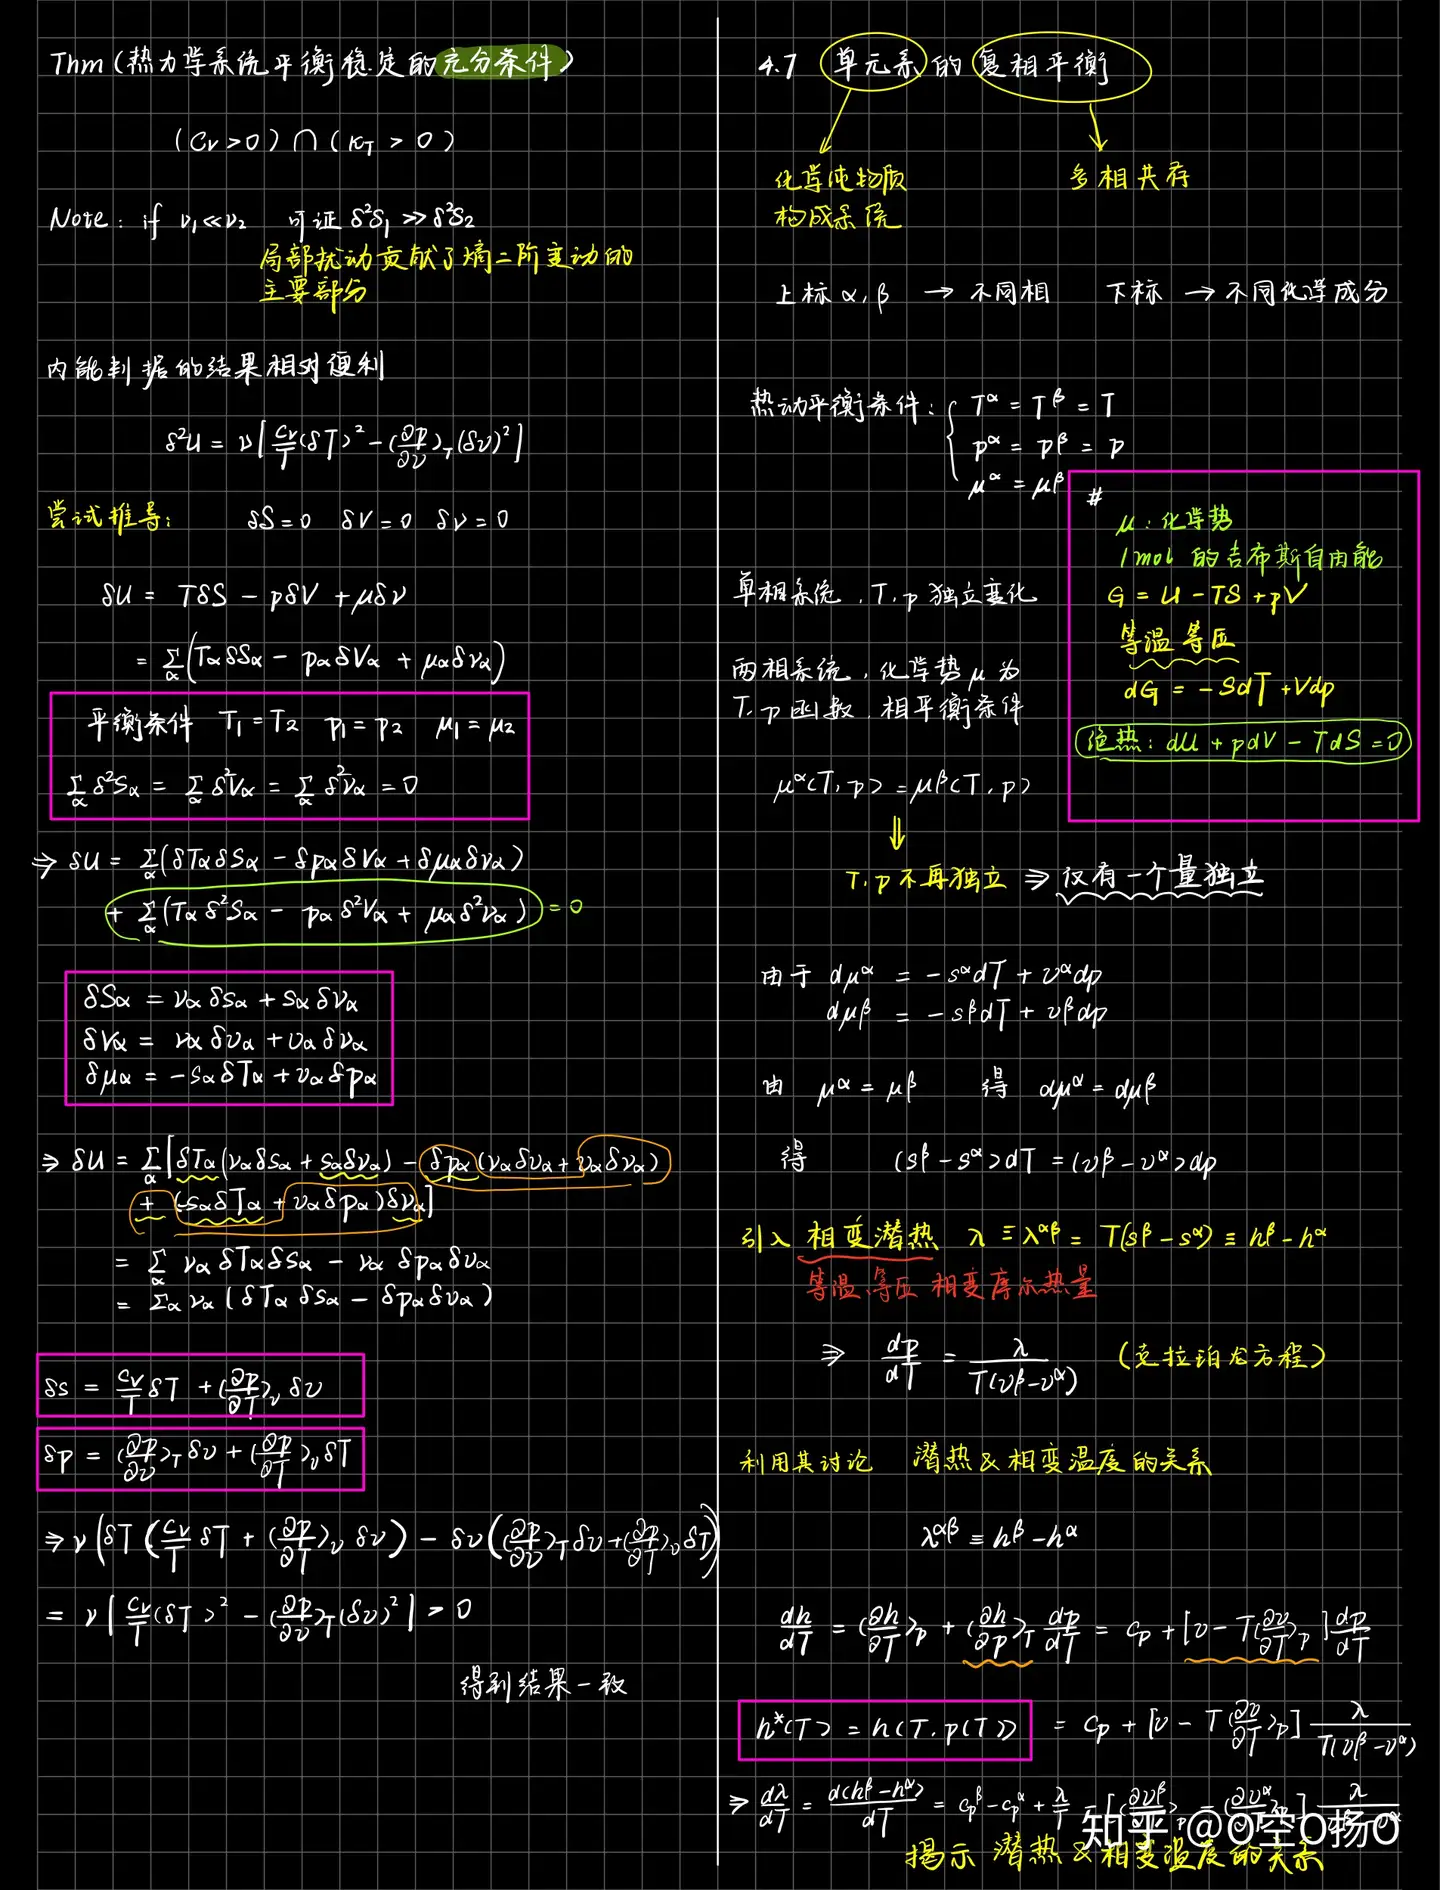 Thm (热力学系统平衡稳定的充分条件)
(Cv>0)∩(κT > 0)
Note: if ν₁≪ν₂ 可证 δ²S₁ ≫ δ²S₂
局部扰动贡献了熵二阶变动的
主要部分
内能判据的结果相对便利
δ²U = ν[Cv/T(δT)² - (∂p/∂v)T(δv)²]
尝试推导: δS=0 δV=0 δν=0
δU = TδS - pδV + μδν
= Σα(TαδSα - pαδVα + μαδνα)
平衡条件 T₁=T₂ p₁=p₂ μ₁=μ₂
Σα δ²Sα = Σα δ²Vα = Σα δ²να = 0
⇒ δU = Σα(δTαδSα - δpαδVα + δμαδνα)
+ Σα(Tαδ²Sα - pαδ²Vα + μαδ²να) = 0
δSα = ναδsα + sαδνα
δVα = ναδvα + vαδνα
δμα = -sαδTα + vαδpα
⇒ δU = Σα[δTα(ναδsα + sαδνα) - δpα(ναδvα + vαδνα)
+ (-sαδTα + vαδpα)δνα]
= Σα ναδTαδsα - ναδpαδvα
= Σα να(δTαδsα - δpαδvα)
δs = Cv/T δT + (∂p/∂T)v δv
δp = (∂p/∂v)T δv + (∂p/∂T)v δT
⇒ ν(δT(Cv/T δT + (∂p/∂T)v δv) - δv((∂p/∂v)T δv + (∂p/∂T)v δT))
= ν[Cv/T(δT)² - (∂p/∂v)T(δv)²] > 0
得到结果一致
4.7 单元系的复相平衡
化学纯物质
构成系统
多相共存
上标 α,β → 不同相 下标 → 不同化学成分
热动平衡条件: { Tα = Tβ = T
pα = pβ = p
μα = μβ
#
μ: 化学势
1mol 的吉布斯自由能
G = U - TS + pV
等温等压
dG = -SdT + Vdp
绝热: dU + pdV - TdS = 0
单相系统, T,p 独立变化
两相系统, 化学势μ为
T,p函数, 相平衡条件
μα(T,p) = μβ(T,p)
⇓
T,p不再独立 ⇒ 仅有一个量独立
由于 dμα = -sαdT + vαdp
dμβ = -sβdT + vβdp
由 μα = μβ 得 dμα = dμβ
得 (sβ-sα)dT = (vβ-vα)dp
引入 相变潜热 λ ≡ λαβ = T(sβ-sα) ≡ hβ-hα
等温、等压 相变摩尔热量
⇒ dp/dT = λ/T(vβ-vα) (克拉珀龙方程)
利用其讨论 潜热&相变温度的关系
λαβ ≡ hβ-hα
dh/dT = (∂h/∂T)p + (∂h/∂p)T dp/dT = cp + [v - T(∂v/∂T)p]dp/dT
h*(T) = h(T,p(T)) = cp + [v - T(∂v/∂T)p] λ/T(vβ-vα)
⇒ dλ/dT = d(hβ-hα)/dT = cpβ - cpα + λ/T - [(∂vβ/∂T)p - (∂vα/∂T)p] λ/
揭示 潜热&相变温度的关系
知乎 @O空O扬O